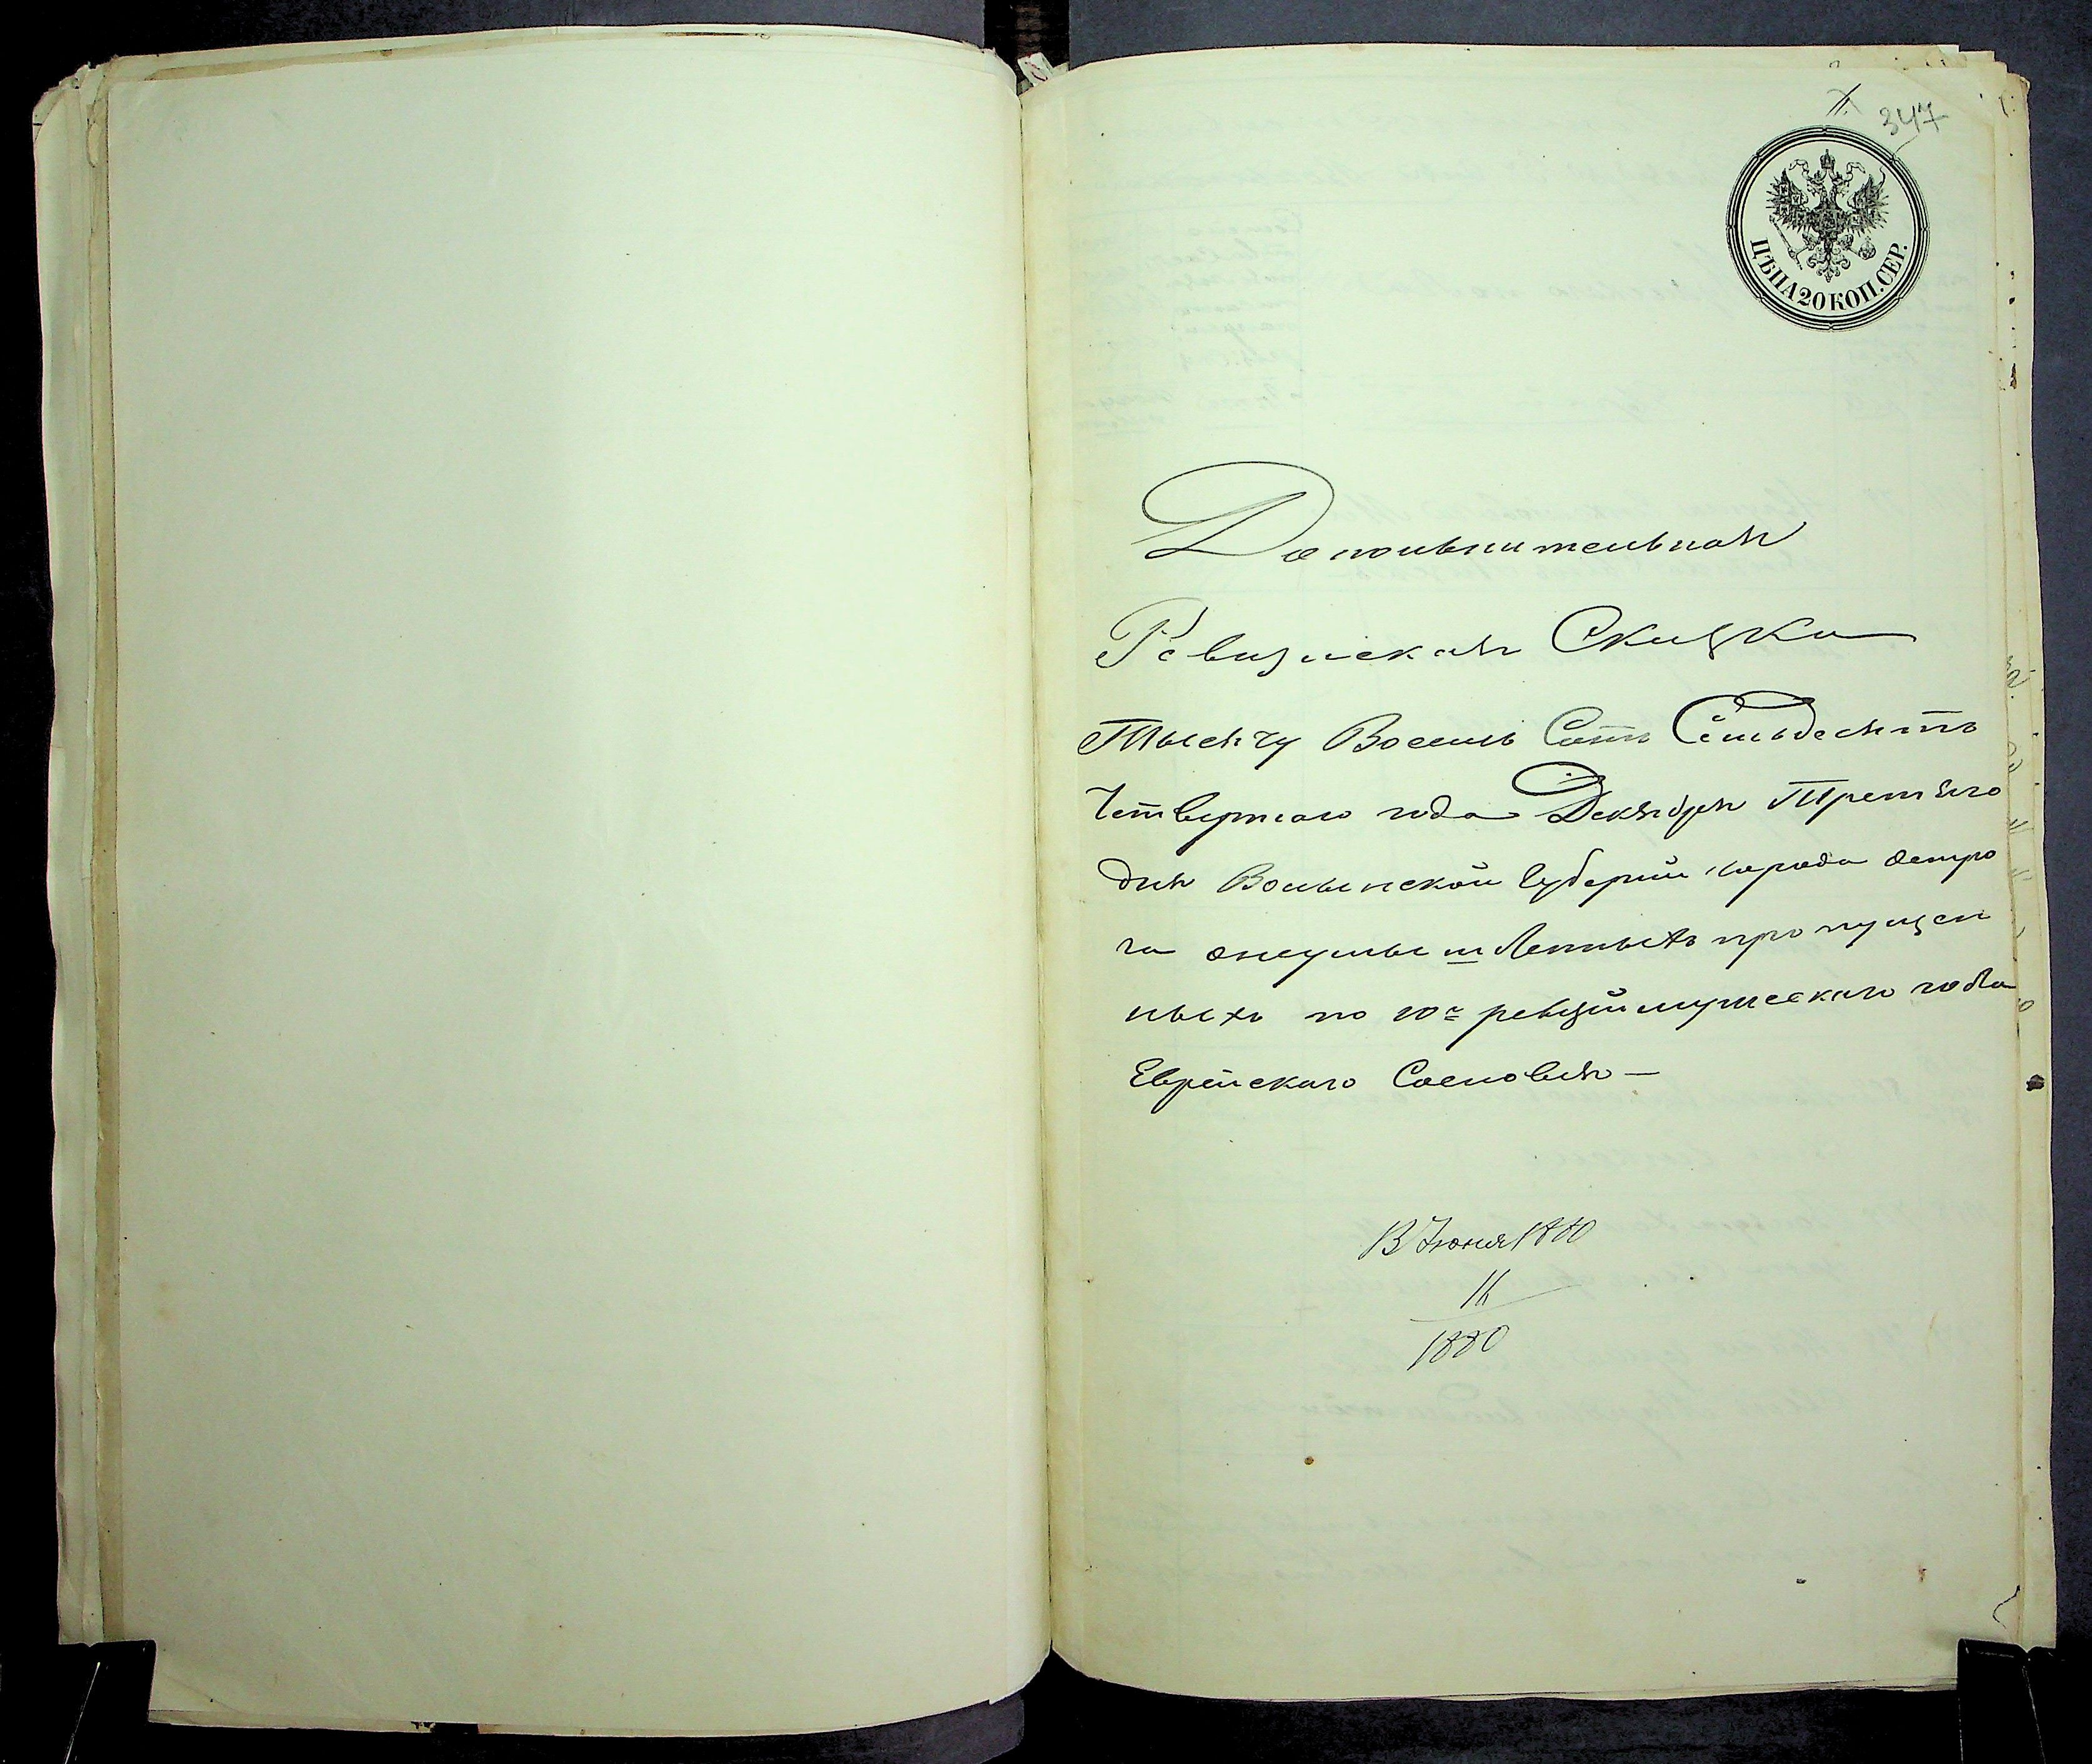 347
ЦѢНА 20 КОП. СЕР.
Дополнительная
Ревизская Сказка
Тысячу Восемь Сотъ Семьдесятъ
Четвертаго года Декабря Третяго
дня Волынской Губерніи города Остро
га онеумышленныхъ пропущен
ныхъ по 10й ревизіи мужескаго пола
Еврейскаго Сословія —
13 Іюня 1880
16
1880